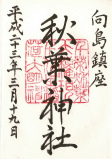 向島鎮座
秋葉神社
平成二十三年三月九日